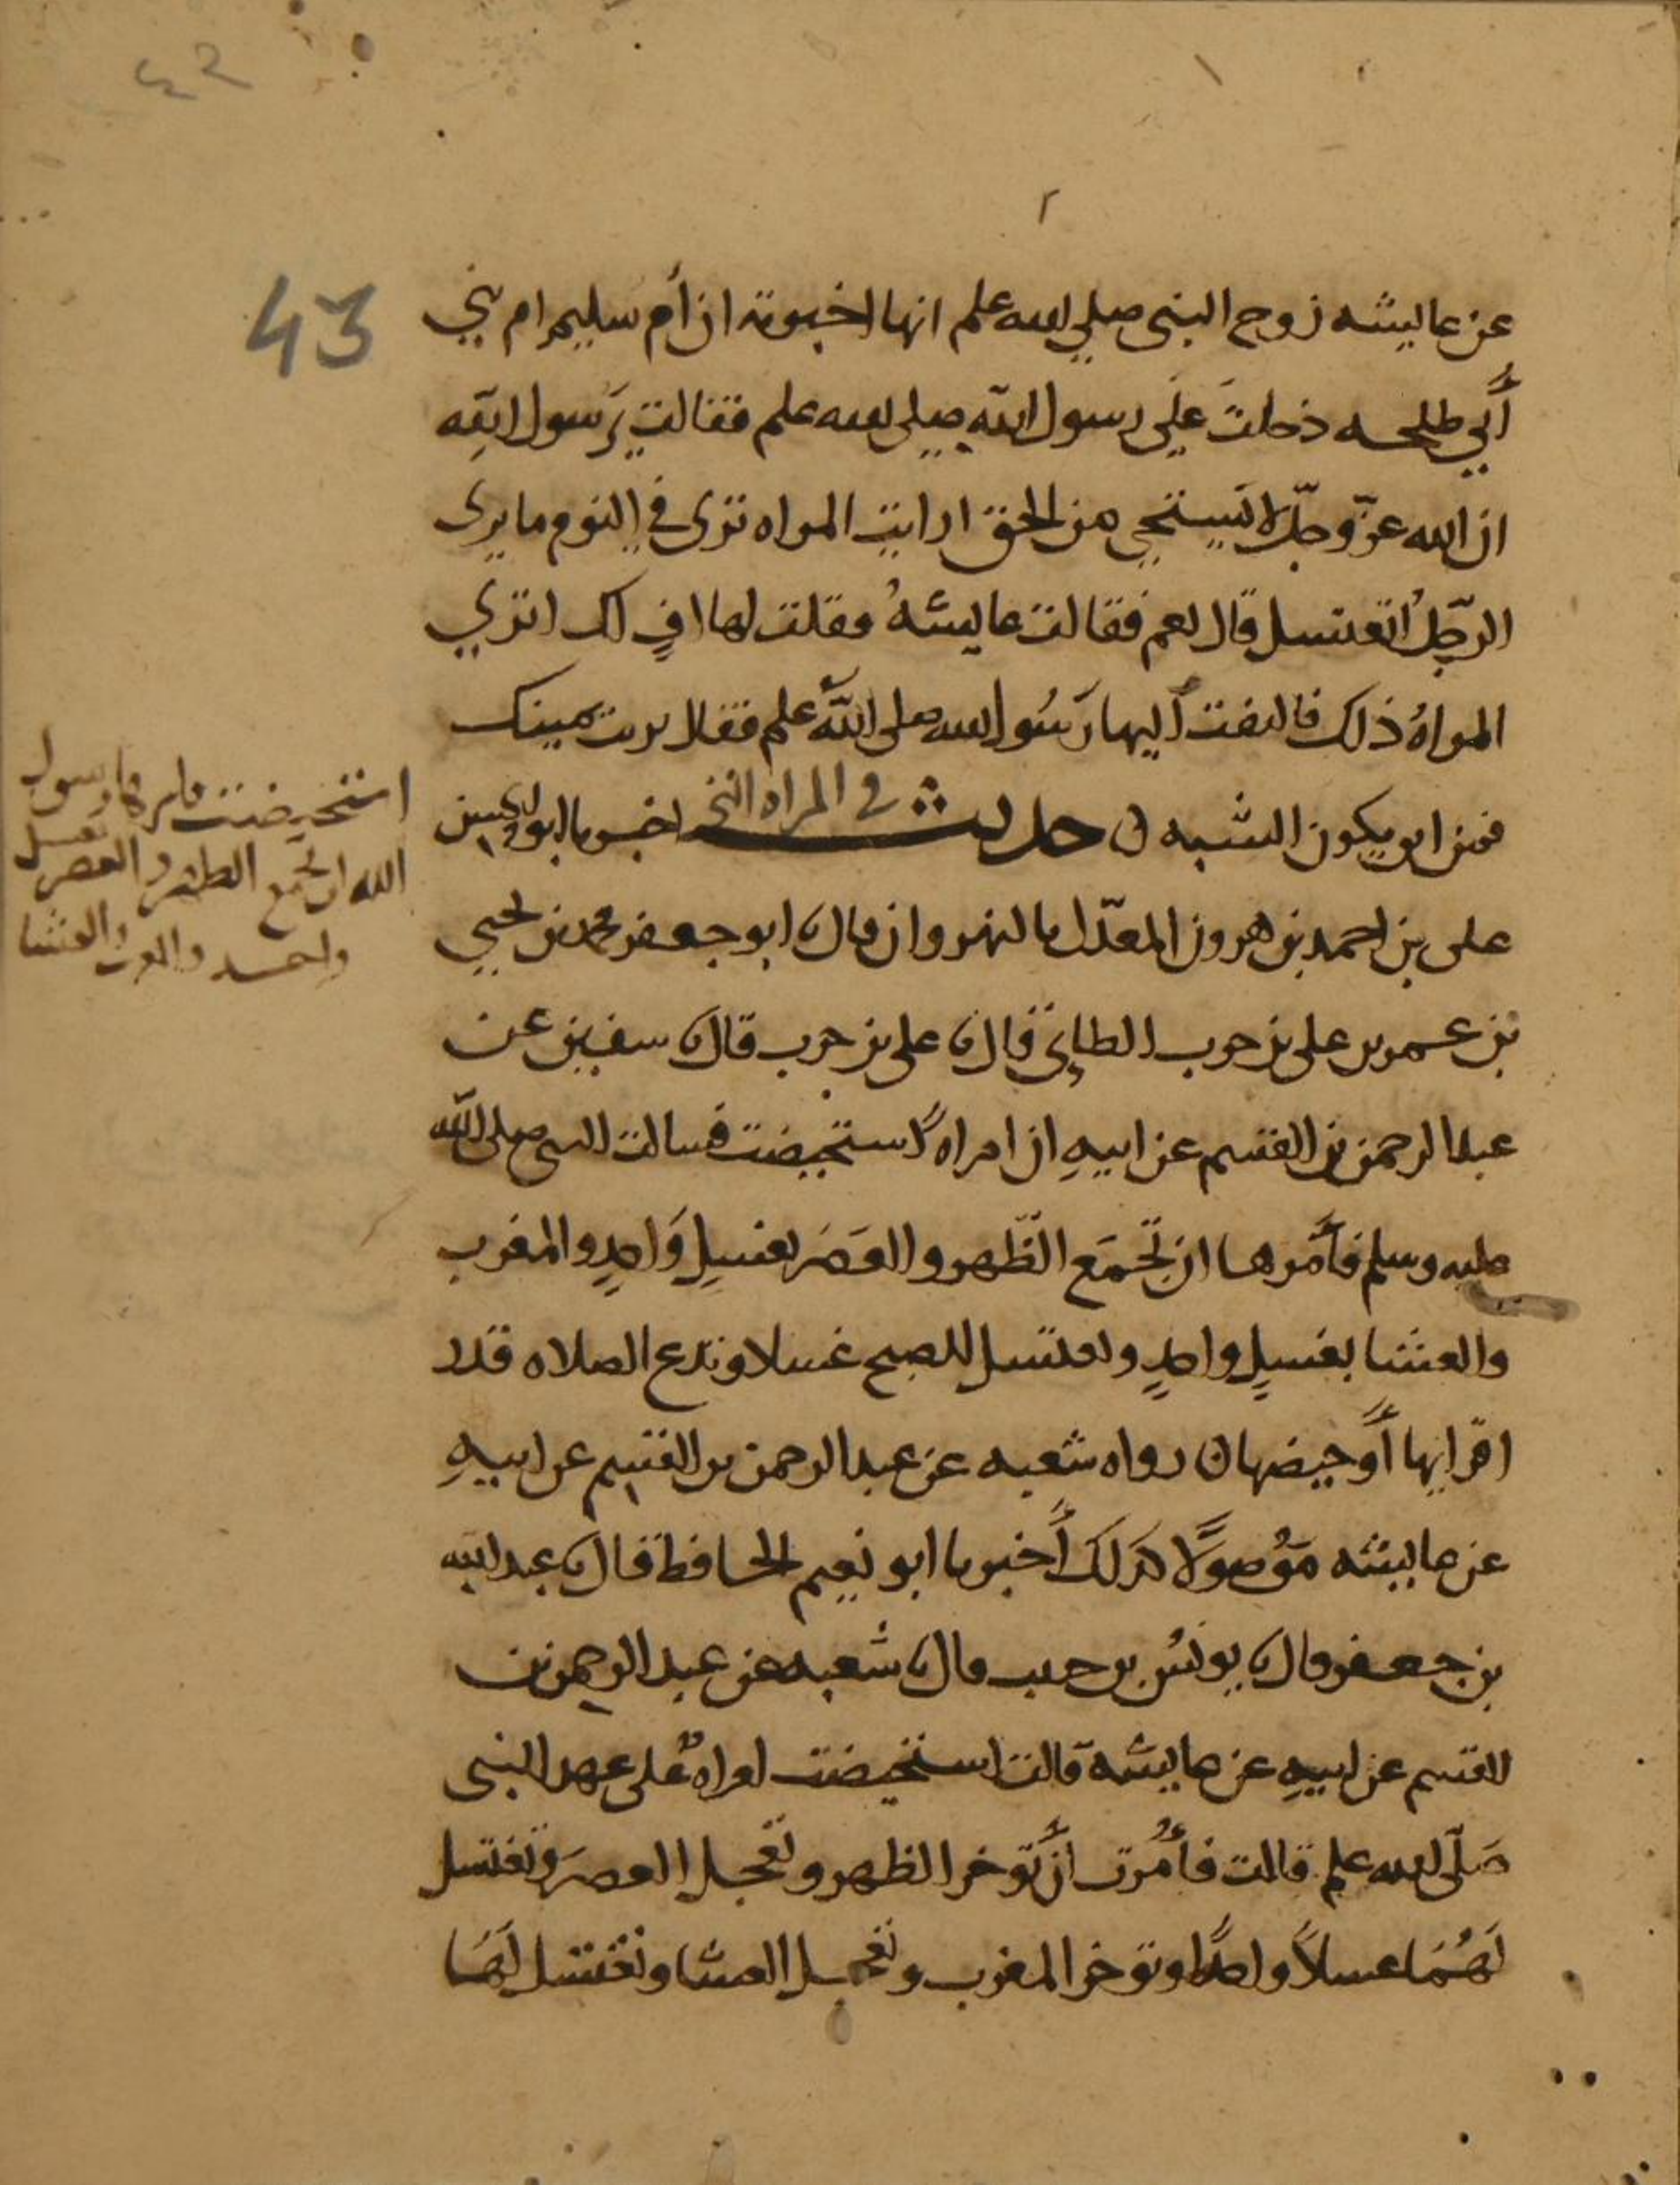 ٤٢
43
عن عايشه زوج النبى صلى الله علم انها اخبرته ان أم سليم ام بني
أبي طلحه دخلت على رسول الله صلى الله علم فقالت يرسول الله
ان الله عزّ وجلّ لا يستحيي من الحق ارايت المراه ترى في النوم ما يرى
الرّجل اتغتسل قال نعم فقالت عايشهُ فقلت لها افٍ لك اترى
المراهُ ذلك فالتفت أليها رَسُول الله صلى اللّه علم فقال تربت يمينك
فمن اين يكون الشبه ن حديث في المراه التي اخبرنا ابو الحسين
على بن احمد بن هرون المعدّل بالنهروان قال ابو جعفر محمد بن يحيى
بن عمر بن على بن حرب الطايي قال على بن حرب قال سفين عن
عبد الرحمن بن القسم عن ابيهِ ان امراه استحيضت فسالت النبى صلى الله
عليه وسلم فأمرها ان تجمَع الظّهر والعَصَر بغسلٍ وَاحدٍ والمغرب
والعشا بغسلٍ واحدٍ وتغتسل للصبح غسلا وتدع الصلاه قدر
اقرايها أو حيضها ن رواه شعبه عن عبد الرحمن بن القسم عن ابيهِ
عن عايشه مَوْصولًا كذلك أخبرنا ابو نعيم الحافظ قال عبد الله
بن جعفر قال يونس بن حبيب قال شعبه عن عبد الرحمن بن
القسم عن ابيهِ عن عايشة قالت استحيضت امراةٌ على عهد النبى
صَلّى الله علم قالت فأُمرت أن تؤخر الظهر وتعجل العصَر وتغتسل
لهُمَا غسلاً واحدًا وتوخر المغرب وتعجل العشا وتغتسل لهُما
استحيضت فامرها رسول
الله ان تجمع الظهر والعصر بغسل
واحد والمغرب والعشا